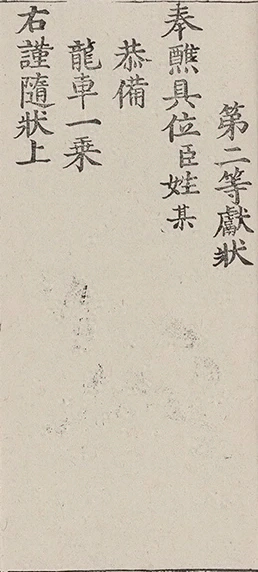 第二等獻狀
奉醮具位臣姓某
恭備
龍車一乘
右謹隨狀上